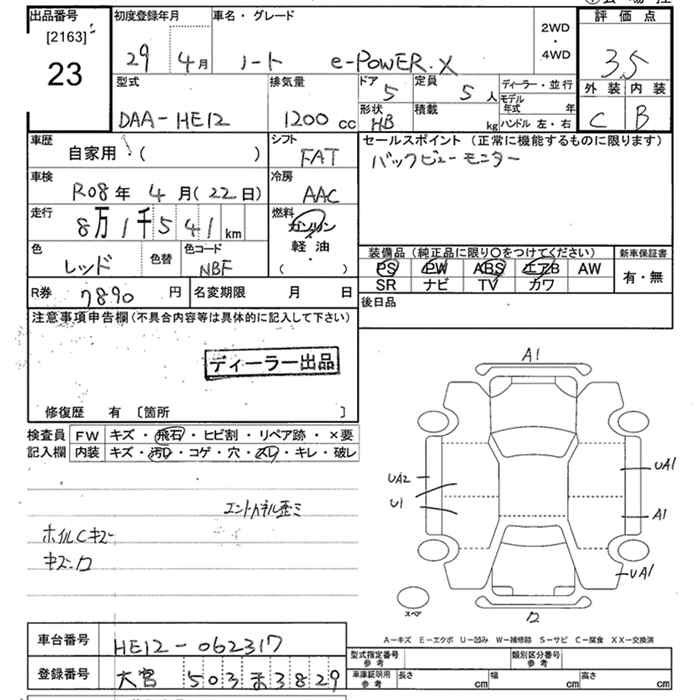 出品番号
[2163]
23
初度登録年月
29 4月
車名・グレード
ノート e-POWER.X
2WD
・
4WD
評価点
3.5
型式
DAA-HE12
排気量
1200 cc
ドア 5
定員 5人
形状 HB
積載 kg
ディーラー・並行
モデル年式 年
ハンドル 左・右
外装 内装
C B
車歴
自家用・( )
シフト
FAT
セールスポイント(正常に機能するものに限ります)
バックビューモニター
車検
R08年 4月(22日)
冷房
AAC
走行
8万1千541km
燃料
ガソリン
軽油
( )
色
レッド
色替
色コード
NBF
装備品(純正品に限り〇をつけてください)
PS PW ABS エアB AW
SR ナビ TV カワ
新車保証書
有・無
R券 7890円
名変期限 月 日
後日品
注意事項申告欄(不具合内容等は具体的に記入して下さい)
ディーラー出品
修復歴 有 〔箇所 〕
検査員記入欄
FW キズ・飛石・ヒビ割・リペア跡・×要
内装 キズ・汚レ・コゲ・穴・スレ・キレ・破レ
ホイルCキズ
A1
UA2
U1
UA1
A1
UA1
スペア
A-キズ E-エクボ U-凹み W-補修跡 S-サビ C-腐食 XX-交換済
車台番号
HE12-062317
登録番号
大宮 503 ま 3829
型式指定番号
参考
類別区分番号
参考
車庫証明用
参考
長さ cm
幅 cm
高さ cm